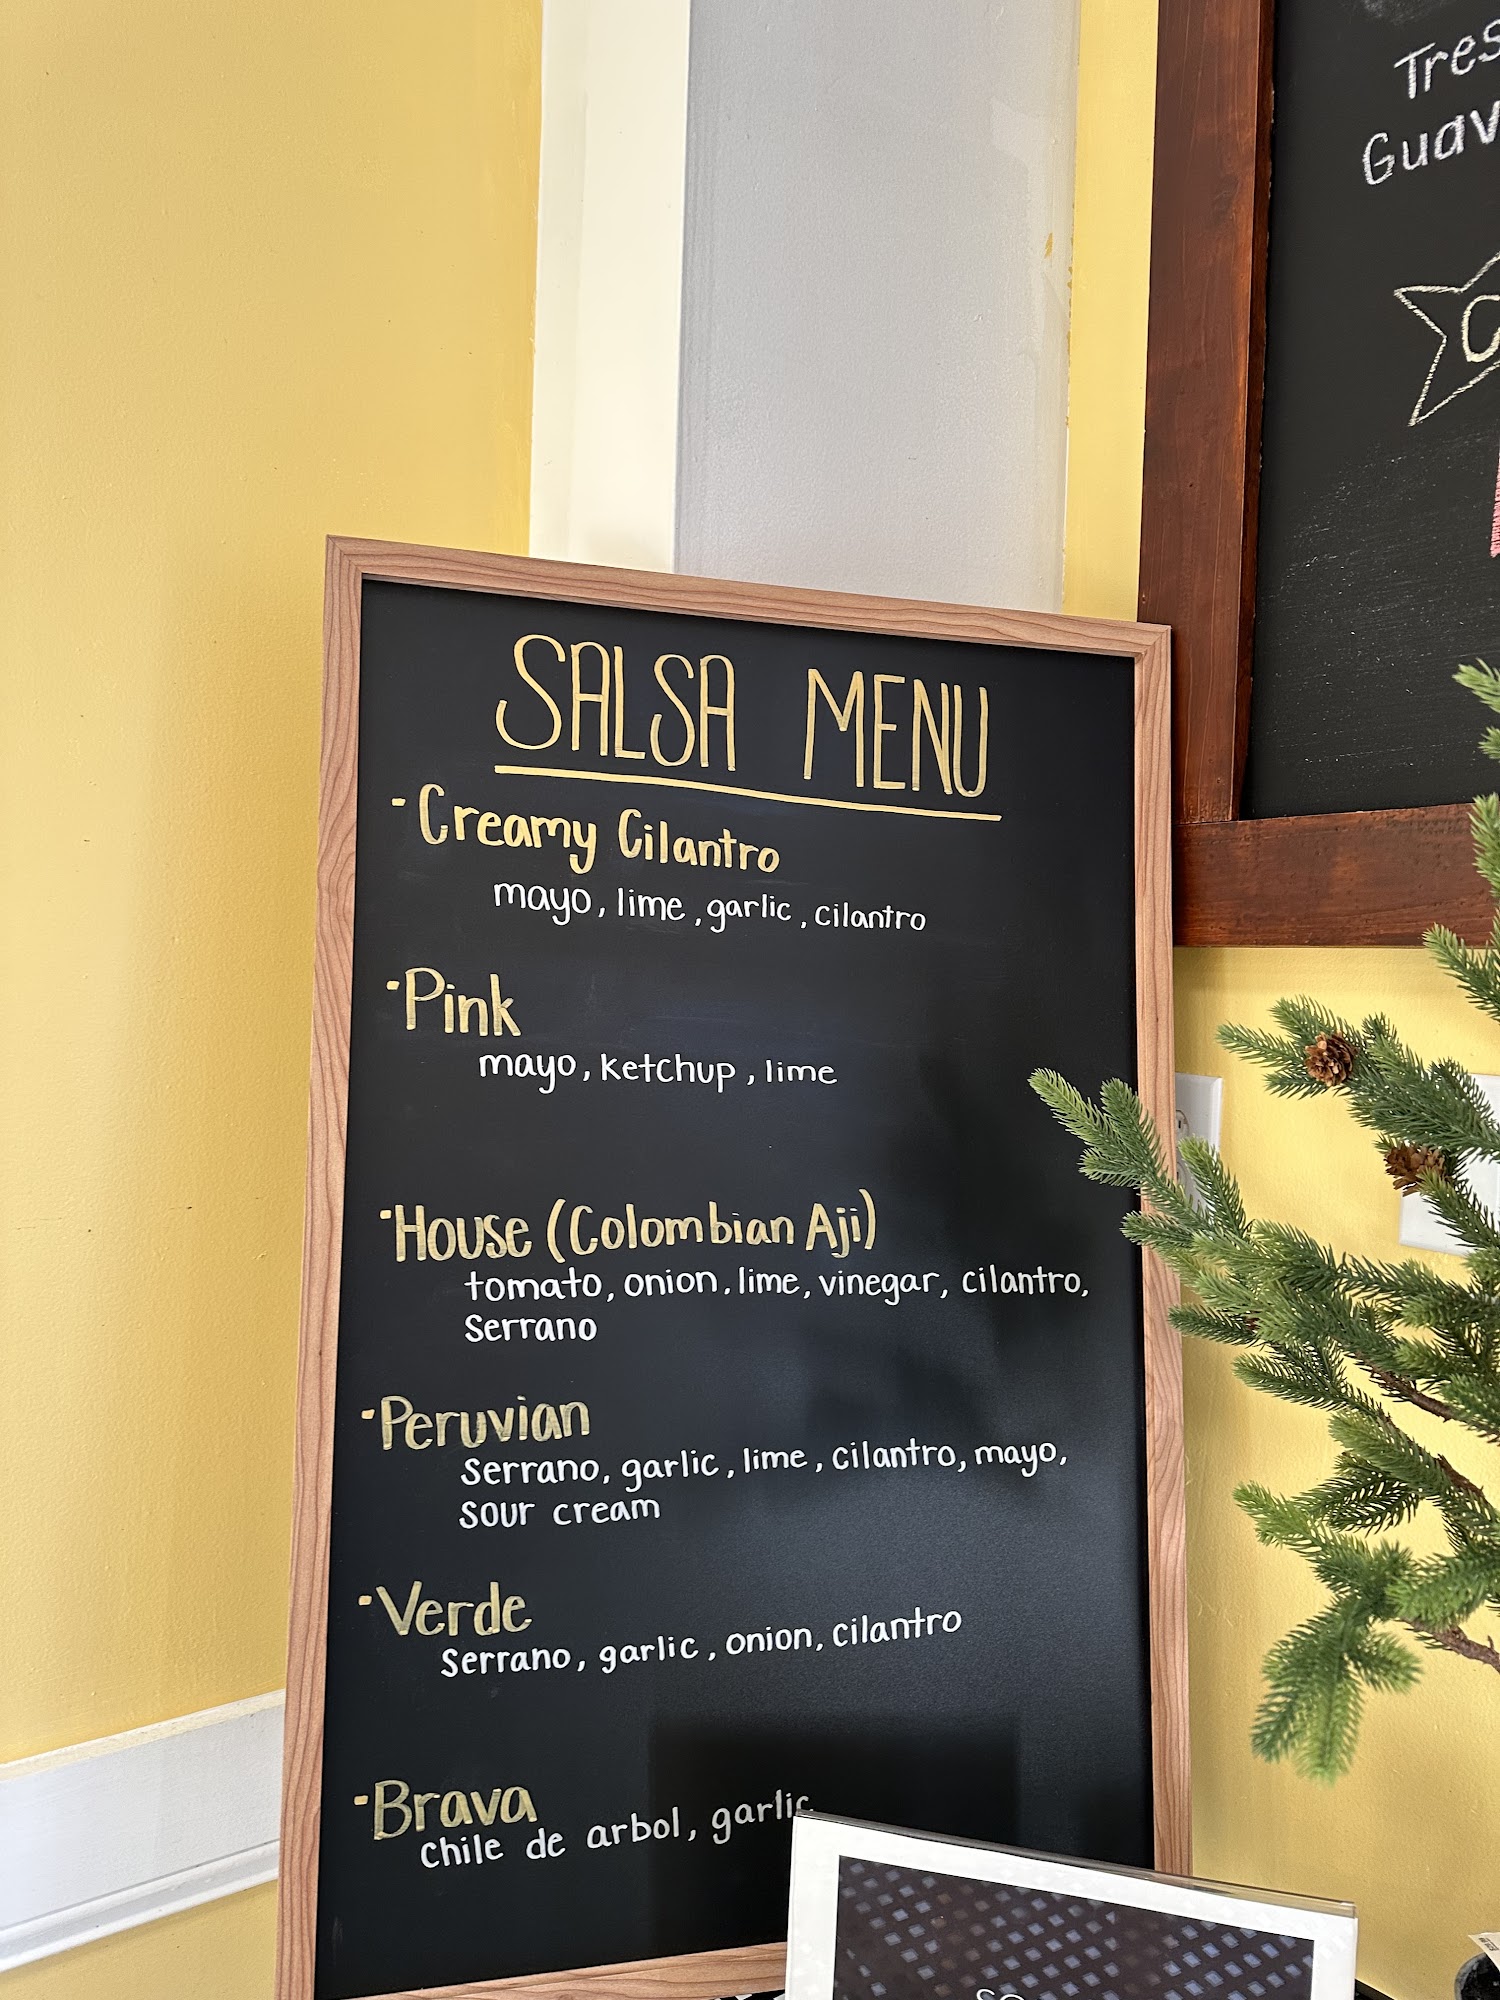 SALSA MENU
- Creamy Cilantro
mayo, lime, garlic, cilantro
- Pink
mayo, ketchup, lime
- House (Colombian Aji)
tomato, onion, lime, vinegar, cilantro,
Serrano
- Peruvian
Serrano, garlic, lime, cilantro, mayo,
sour cream
- Verde
Serrano, garlic, onion, cilantro
- Brava
chile de arbol, garlic
Tres